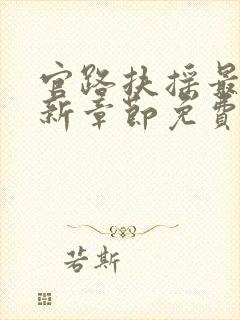 官路扶摇最
新章节免费
若斯